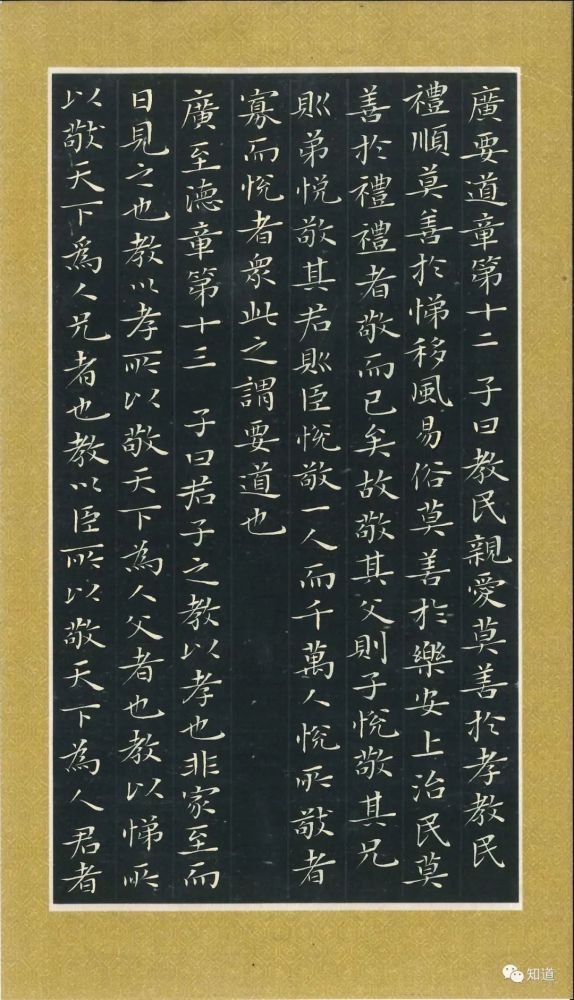 廣要道章第十二 子曰教民親愛莫善於孝教民
禮順莫善於悌移風易俗莫善於樂安上治民莫
善於禮禮者敬而已矣故敬其父則子悅敬其兄
則弟悅敬其君則臣悅敬一人而千萬人悅所敬者
寡而悅者衆此之謂要道也
廣至德章第十三 子曰君子之教以孝也非家至而
日見之也教以孝所以敬天下為人父者也教以悌所
以敬天下爲人兄者也教以臣所以敬天下為人君者
知道